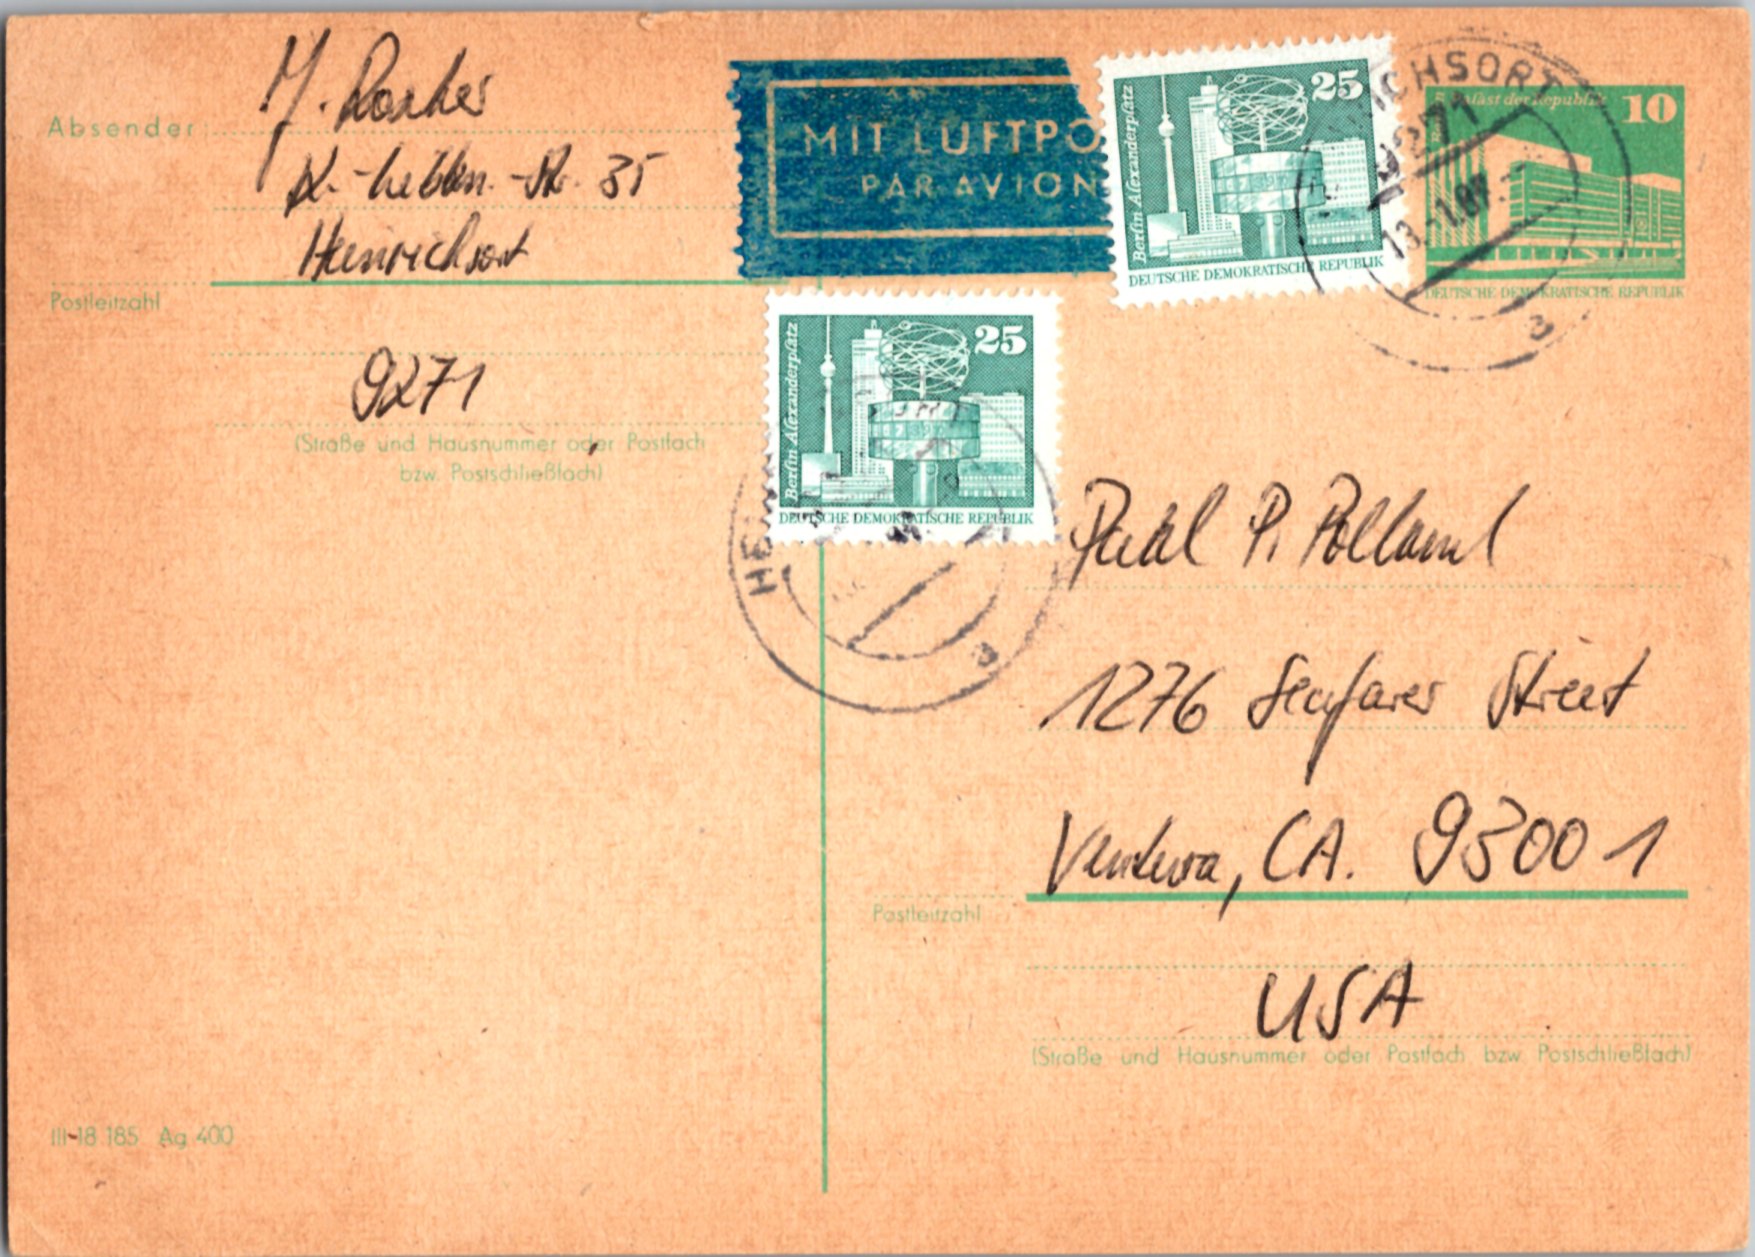 Absender
M. Roscher
K.-Liebkn.-Str. 35
Heinrichsort
Postleitzahl
9271
(Straße und Hausnummer oder Postfach
bzw. Postschließfach)
MIT LUFTPO
PAR AVION
25
Berlin-Alexanderplatz
DEUTSCHE DEMOKRATISCHE REPUBLIK
ICHSORT
9271
13.-1.87.-
a
Palast der Republik
10
DEUTSCHE DEMOKRATISCHE REPUBLIK
25
Berlin-Alexanderplatz
DEUTSCHE DEMOKRATISCHE REPUBLIK
HE
a
Paul P. Polland
1276 Seafarer Street
Ventura, CA. 93001
Postleitzahl
USA
(Straße und Hausnummer oder Postfach bzw. Postschließfach)
III-18 185 Ag 400